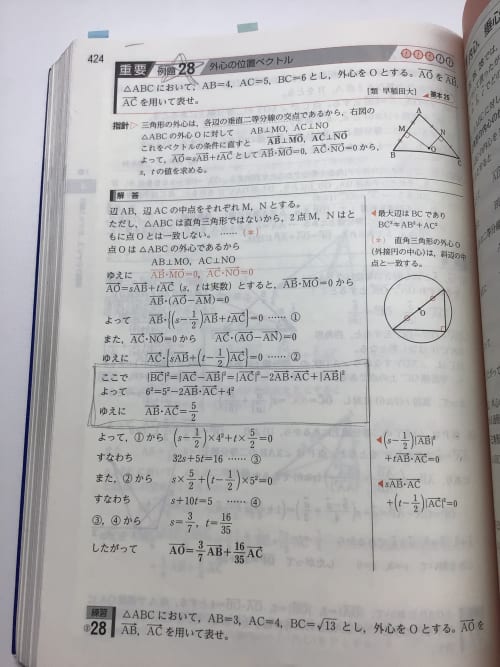 424
重要 例題 28 外心の位置ベクトル
△ABCにおいて,AB=4,AC=5,BC=6とし,外心をOとする。AO→をAB→,
AC→を用いて表せ。
[類 早稲田大] 基本25
指針 三角形の外心は,各辺の垂直二等分線の交点であるから,右図の
△ABCの外心Oに対して AB⊥MO,AC⊥NO
これをベクトルの条件に直すと AB→⊥MO→,AC→⊥NO→
よって,AO→=sAB→+tAC→としてAB→・MO→=0,AC→・NO→=0から,
s,tの値を求める。
A
M
N
O
B
C
解答
辺AB,辺ACの中点をそれぞれM,Nとする。
ただし,△ABCは直角三角形ではないから,2点M,Nはと
もに点Oとは一致しない。 ……(*)
点Oは△ABCの外心であるから
AB⊥MO,AC⊥NO
ゆえに AB→・MO→=0,AC→・NO→=0
AO→=sAB→+tAC→(s,tは実数)とすると,AB→・MO→=0から
AB→・(AO→−AM→)=0
よって AB→・{(s−1/2)AB→+tAC→}=0 ……①
また,AC→・NO→=0から AC→・(AO→−AN→)=0
ゆえに AC→・{sAB→+(t−1/2)AC→}=0 ……②
ここで |BC→|²=|AC→−AB→|²=|AC→|²−2AB→・AC→+|AB→|²
よって 6²=5²−2AB→・AC→+4²
ゆえに AB→・AC→=5/2
よって,①から (s−1/2)×4²+t×5/2=0
すなわち 32s+5t=16 ……③
また,②から s×5/2+(t−1/2)×5²=0
すなわち s+10t=5 ……④
③,④から s=3/7,t=16/35
したがって AO→=3/7AB→+16/35AC→
最大辺はBCであり
BC²≠AB²+AC²
(*) 直角三角形の外心O
(外接円の中心)は,斜辺の中
点と一致する。
O
(s−1/2)|AB→|²
+tAB→・AC→=0
sAB→・AC→
+(t−1/2)|AC→|²=0
練習
②28 △ABCにおいて,AB=3,AC=4,BC=√13とし,外心をOとする。AO→を
AB→,AC→を用いて表せ。